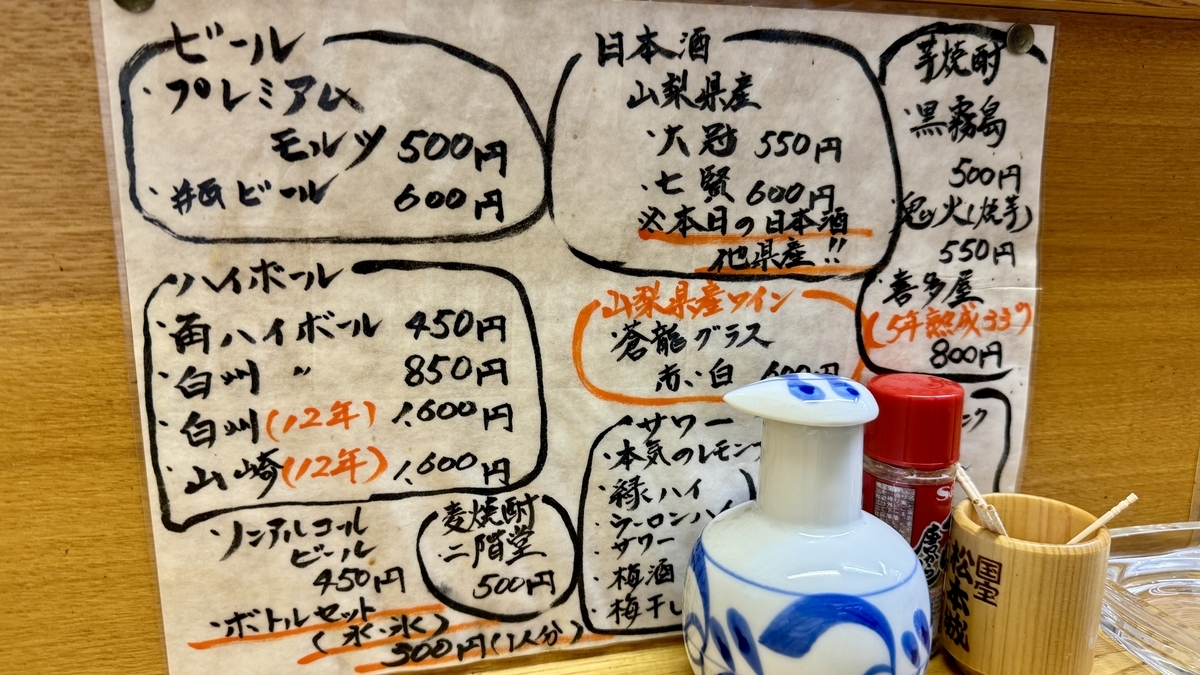 ビール
・プレミアム
モルツ 500円
ビール 600円
日本酒
山梨県産
・大冠 550円
・七賢 600円
※本日の日本酒
他県産!!
芋焼酎
・黒霧島
500円
・鬼火(焼芋)
550円
・喜多屋
800円
ハイボール
・角ハイボール 450円
・白州 〃 850円
・白州(12年) 1.600円
・山崎(12年) 1.600円
山梨県産ワイン
・蒼龍グラス
赤い白 600円
サワー
・本気のレモン
・緑ハイ
・ウーロンハイ
・サワー
・梅酒
・梅干し
・ノンアルコール
ビール
450円
麦焼酎
・二階堂
500円
・ボトルセット
(水・氷)
500円(1人分)
国宝
松本城